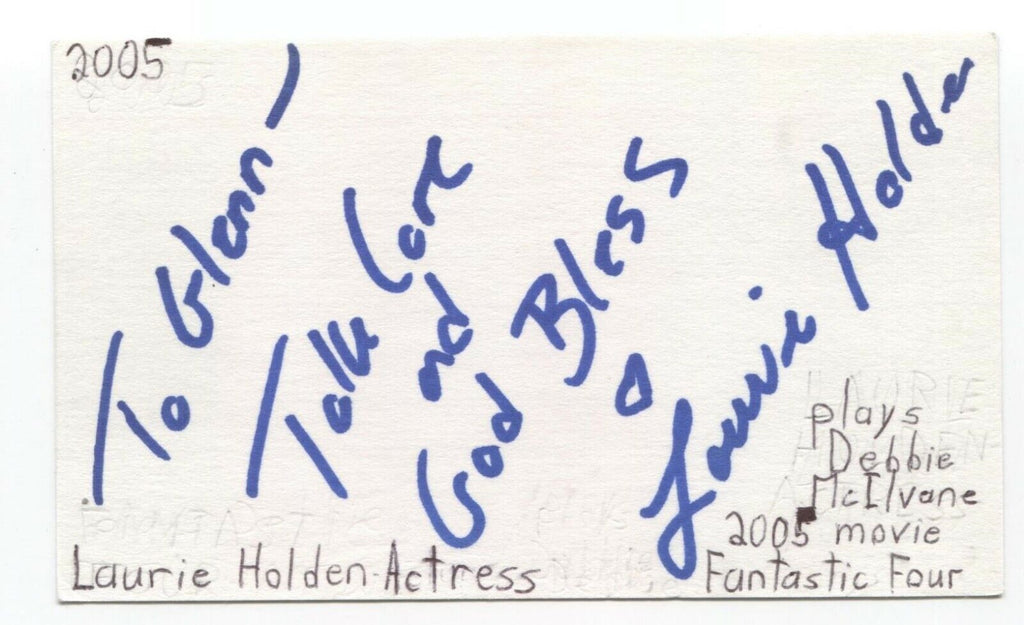 2005
To Glenn -
Take Care
and
God Bless
Laurie Holden
plays
Debbie
McIlvane
2005 movie
Fantastic Four
Laurie Holden-Actress